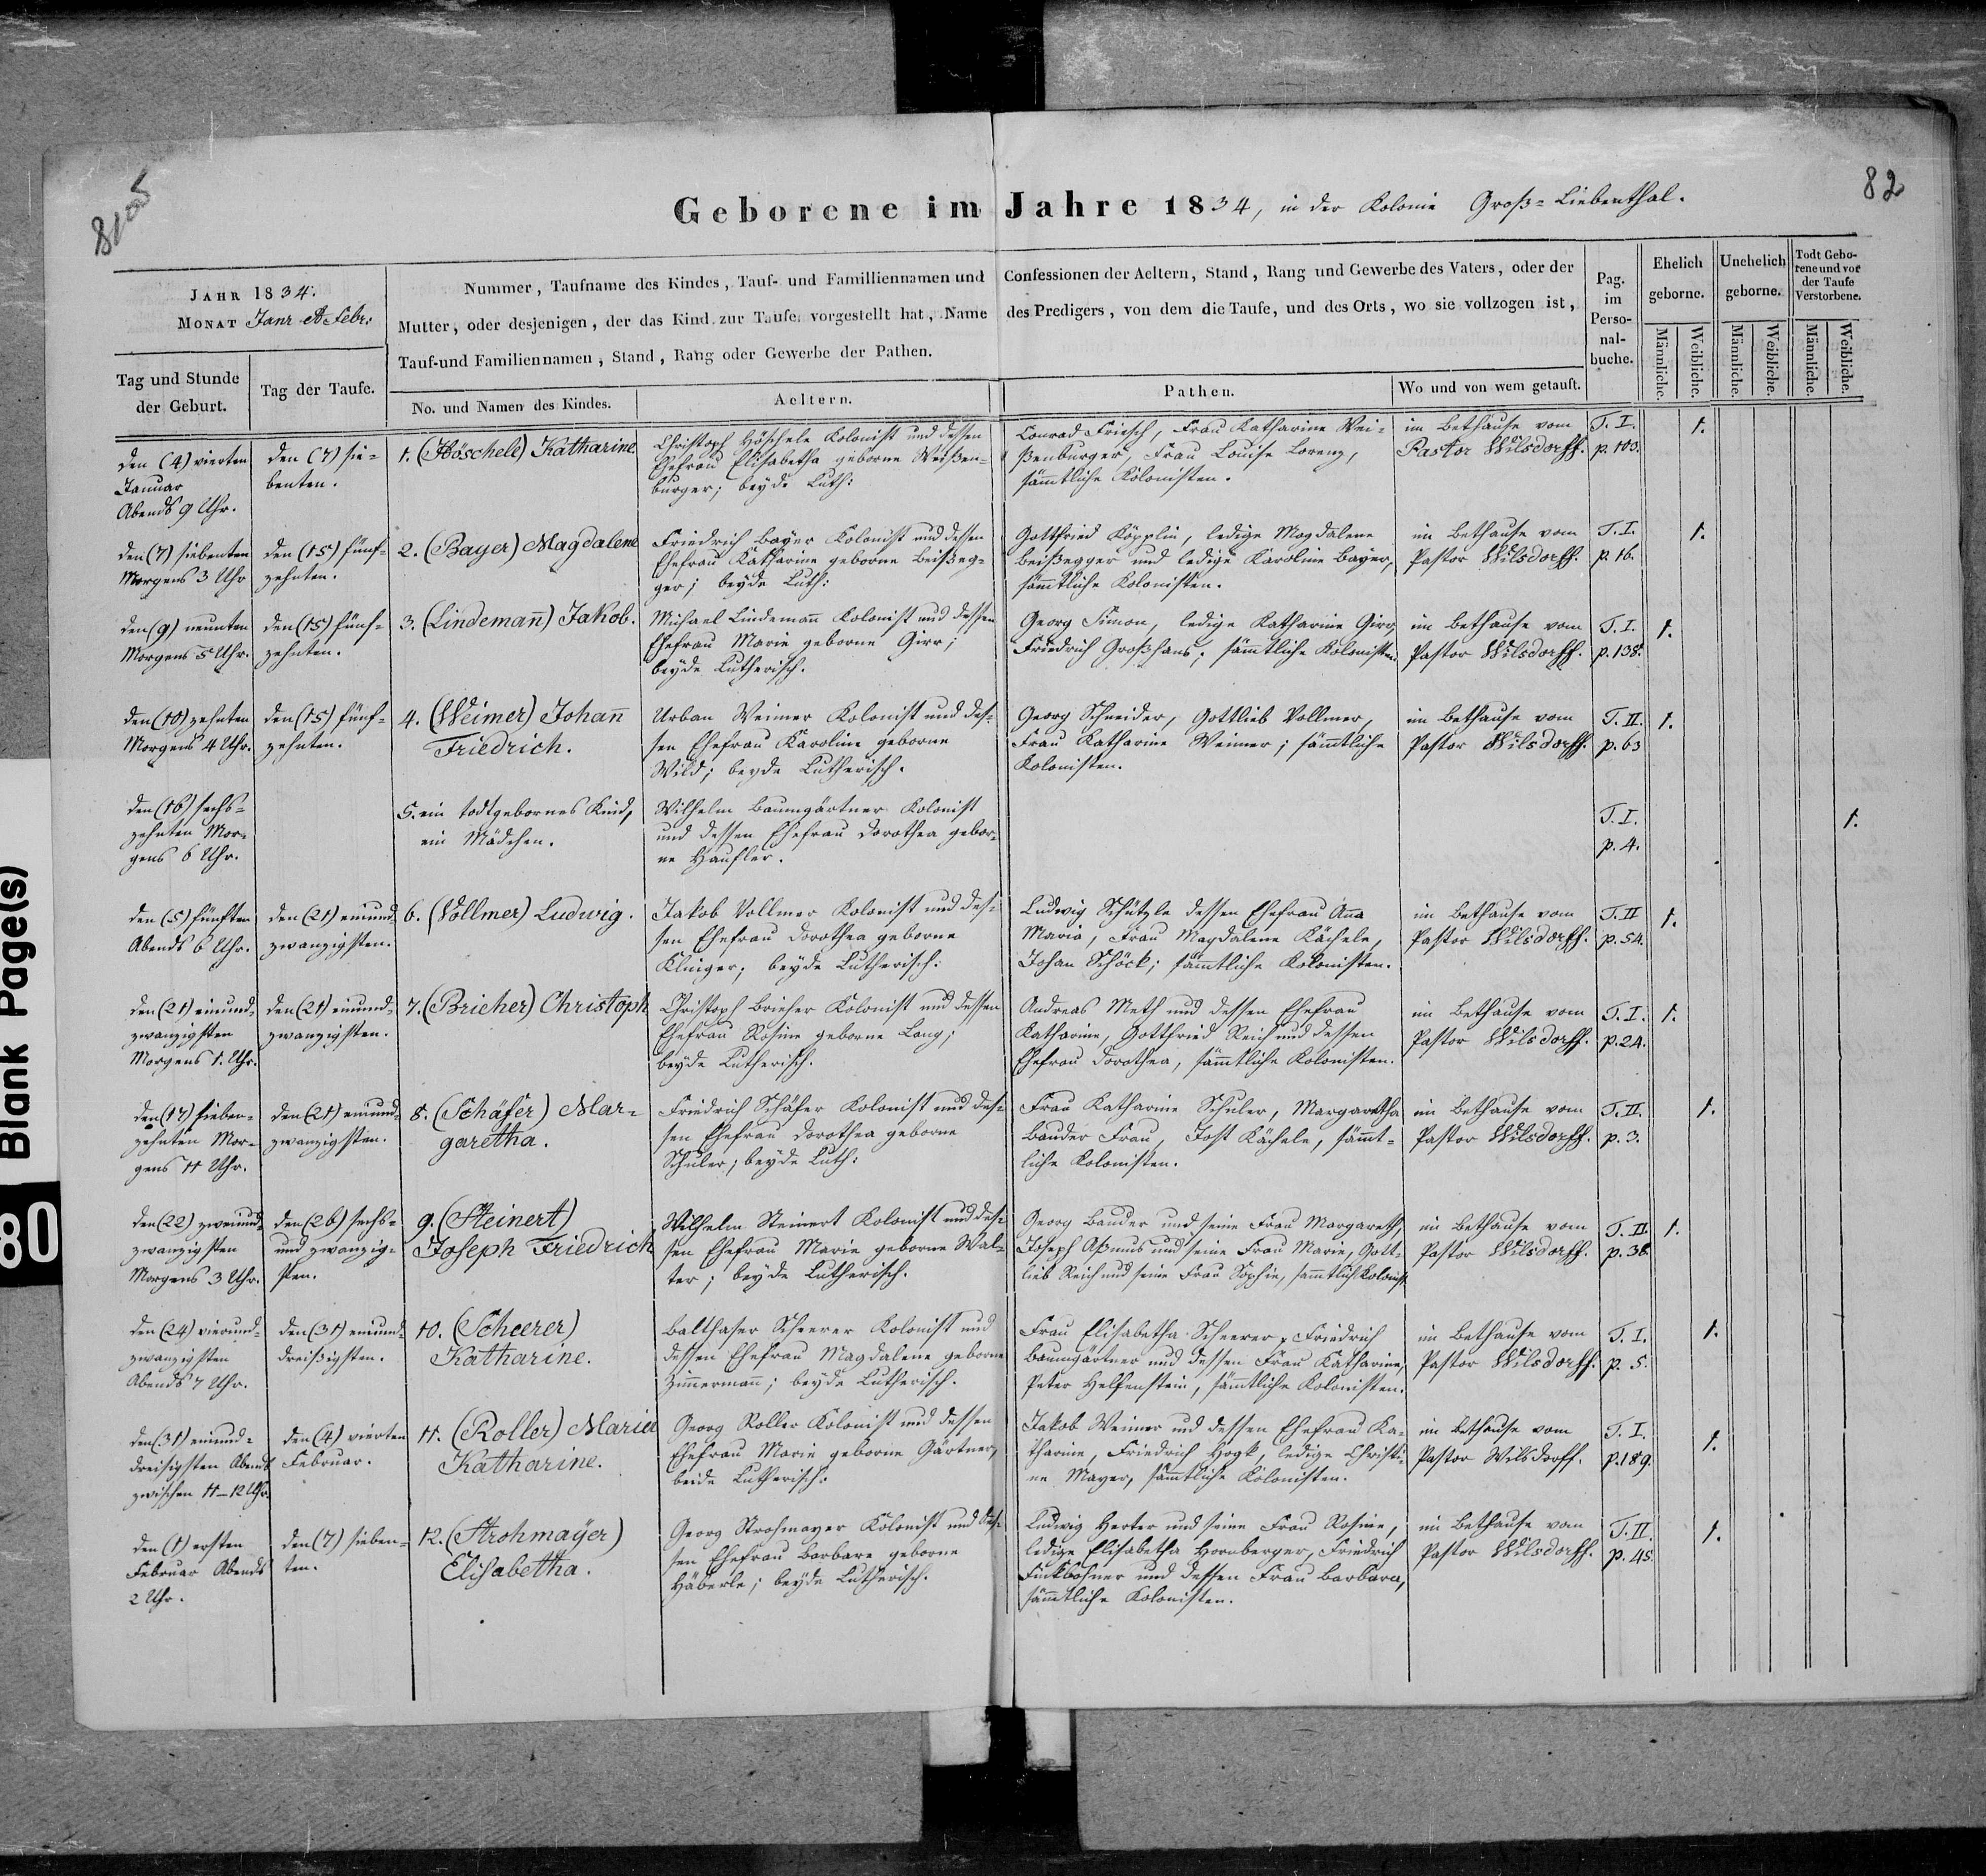 82
Geborene im Jahre 1834, in der Kolonie Groß-Liebenthal.
JAHR 1834.
MONAT Janr et Febr:
Nummer, Taufname des Kindes, Tauf- und Familliennamen und
Mutter, oder desjenigen, der das Kind zur Taufe vorgestellt hat, Name
Tauf-und Familiennamen, Stand, Rang oder Gewerbe der Pathen.
Confessionen der Aeltern, Stand, Rang und Gewerbe des Vaters, oder der
des Predigers, von dem die Taufe, und des Orts, wo sie vollzogen ist,
Pag.
im
Perso-
nal-
buche.
Ehelich
geborne.
Unehelich
geborne.
Todt Gebo-
rene und vor
der Taufe
Verstorbene.
Männliche.
Weibliche.
Männliche.
Weibliche.
Männliche.
Weibliche.
Tag und Stunde
der Geburt.
Tag der Taufe.
No. und Namen des Kindes.
Aeltern.
Pathen.
Wo und von wem getauft.
den (4) vierten
Januar
Abends 9 Uhr.
den (7) sie-
benten.
1. (Höschele) Katharine
Christoph Höschele Kolonist und dessen
Ehefrau Elisabetha geborne Weißen-
burger; beyde Luth:
Conrad Friesch, Frau Katharine Wei-
ßenburger, Frau Louise Lorenz,
sämtliche Kolonisten.
im Bethause vom
Pastor Wilsdorff.
T. I.
p. 103.
1.
den (7) siebenten
Morgens 3 Uhr
den (15) fünf-
zehnten.
2. (Bayer) Magdalene
Friedrich Bayer Kolonist und dessen
Ehefrau Katharine geborne Beißeg-
ger; beyde Luth:
Gottfried Köpplin, ledige Magdalene
Beißegger und ledige Karoline Bayer,
sämtliche Kolonisten.
im Bethause vom
Pastor Wilsdorff.
T. I.
p. 16.
1.
den (9) neunten
Morgens 5 Uhr.
den (15) fünf-
zehnten.
3. (Lindemañ) Jakob.
Michael Lindemañ Kolonist und dessen
Ehefrau Marie geborne Girr;
beyde Lutherisch.
Georg Simon, ledige Katharine Girr,
Friedrich Großhans; sämtliche Kolonisten.
im Bethause vom
Pastor Wilsdorff.
T. I.
p. 138.
1.
den (10) zehnten
Morgens 4 Uhr.
den (15) fünf-
zehnten.
4. (Weimer) Johañ
Friedrich.
Urban Weimer Kolonist und des-
sen Ehefrau Karoline geborne
Wild; beyde Lutherisch.
Georg Schneider, Gottlieb Vollmer,
Frau Katharine Weimer; sämtliche
Kolonisten.
im Bethause vom
Pastor Wilsdorff.
T. II.
p. 63
1.
den (16) sechs-
zehnten Mor-
gens 6 Uhr.
5. ein todtgebornes Kind,
ein Mädchen.
Wilhelm Baumgärtner Kolonist
und dessen Ehefrau Dorothea gebor-
ne Haufler.
T. I.
p. 4.
1.
den (5) fünften
Abends 6 Uhr.
den (21) einund-
zwanzigsten.
6. (Vollmer) Ludwig.
Jakob Vollmer Kolonist und des-
sen Ehefrau Dorothea geborne
Klinger; beyde Lutherisch.
Ludwig Schützle dessen Ehefrau Aña
Maria, Frau Magdalene Kächele,
Johan Schöck; sämtliche Kolonisten.
im Bethause vom
Pastor Wilsdorff.
T. II
p. 54.
1.
den (21) einund-
zwanzigsten
Morgens 1. Uhr.
den (21) einund-
zwanzigsten.
7. (Bricher) Christoph
Christoph Bricher Kolonist und dessen
Ehefrau Rosine geborne Lang;
beyde Lutherisch.
Andreas Meth und dessen Ehefrau
Katharine, Gottfried Reich und dessen
Ehefrau Dorothea, sämtliche Kolonisten.
im Bethause vom
Pastor Wilsdorff.
T. I.
p. 24.
1.
den (17) sieben-
zehnten Mor-
gens 11 Uhr.
den (21) einund-
zwanzigsten.
8. (Schäfer) Mar-
garetha.
Friedrich Schäfer Kolonist und des-
sen Ehefrau Dorothea geborne
Schuler; beyde Luth:
Frau Katharine Schuler, Margaretha
Bauder Frau, Jost Kächele, sämt-
liche Kolonisten.
im Bethause vom
Pastor Wilsdorff.
T. II.
p. 3.
1.
den (22) zweiund-
zwanzigsten
Morgens 3 Uhr.
den (26) sechs-
und zwanzig-
sten.
9. (Steinert)
Joseph Friedrich
Wilhelm Steinert Kolonist und des-
sen Ehefrau Marie geborne Wal-
ter; beyde Lutherisch.
Georg Bauder und seine Frau Margareth,
Joseph Aßmus und seine Frau Marie, Gott-
lieb Reich und seine Frau Sophie, sämtlich Kolonist.
im Bethause vom
Pastor Wilsdorff.
T. II.
p. 38
1.
den (24) vierund-
zwanzigsten
Abends 7 Uhr.
den (31) einund-
dreißigsten.
10. (Scheerer)
Katharine.
Balthaser Scheerer Kolonist und
dessen Ehefrau Magdalene geborne
Zimmermañ; beyde Lutherisch.
Frau Elisabetha Scheerer, Friedrich
Baumgärtner und dessen Frau Katharine,
Peter Helfenstein, sämtliche Kolonisten.
im Bethause vom
Pastor Wilsdorff.
T. I.
p. 5.
1.
den (31) einund-
dreisigsten Abends
zwischen 11-12 Uhr.
den (4) vierten
Februar.
11. (Roller) Maria
Katharine.
Georg Roller Kolonist und dessen
Ehefrau Marie geborne Gärtner,
beide Lutherisch.
Jakob Weimer und dessen Ehefrau Ka-
tharine, Friedrich Hogk, ledige Christi-
ne Mayer, sämtliche Kolonisten.
im Bethause vom
Pastor Wilsdorff.
T. I.
p. 189.
1.
den (1) ersten
Februar Abends
2 Uhr.
den (7) sieben-
ten.
12. (Strohmayer)
Elisabetha.
Georg Strohmayer Kolonist und des-
sen Ehefrau Barbare geborne
Häberle; beyde Lutherisch.
Ludwig Herter und seine Frau Rosine,
ledige Elisabetha Hornberger, Friedrich
Finkbohner und dessen Frau Barbara,
sämtliche Kolonisten.
im Bethause vom
Pastor Wilsdorff.
T. II.
p. 45.
1.
Blank Page(s)
80